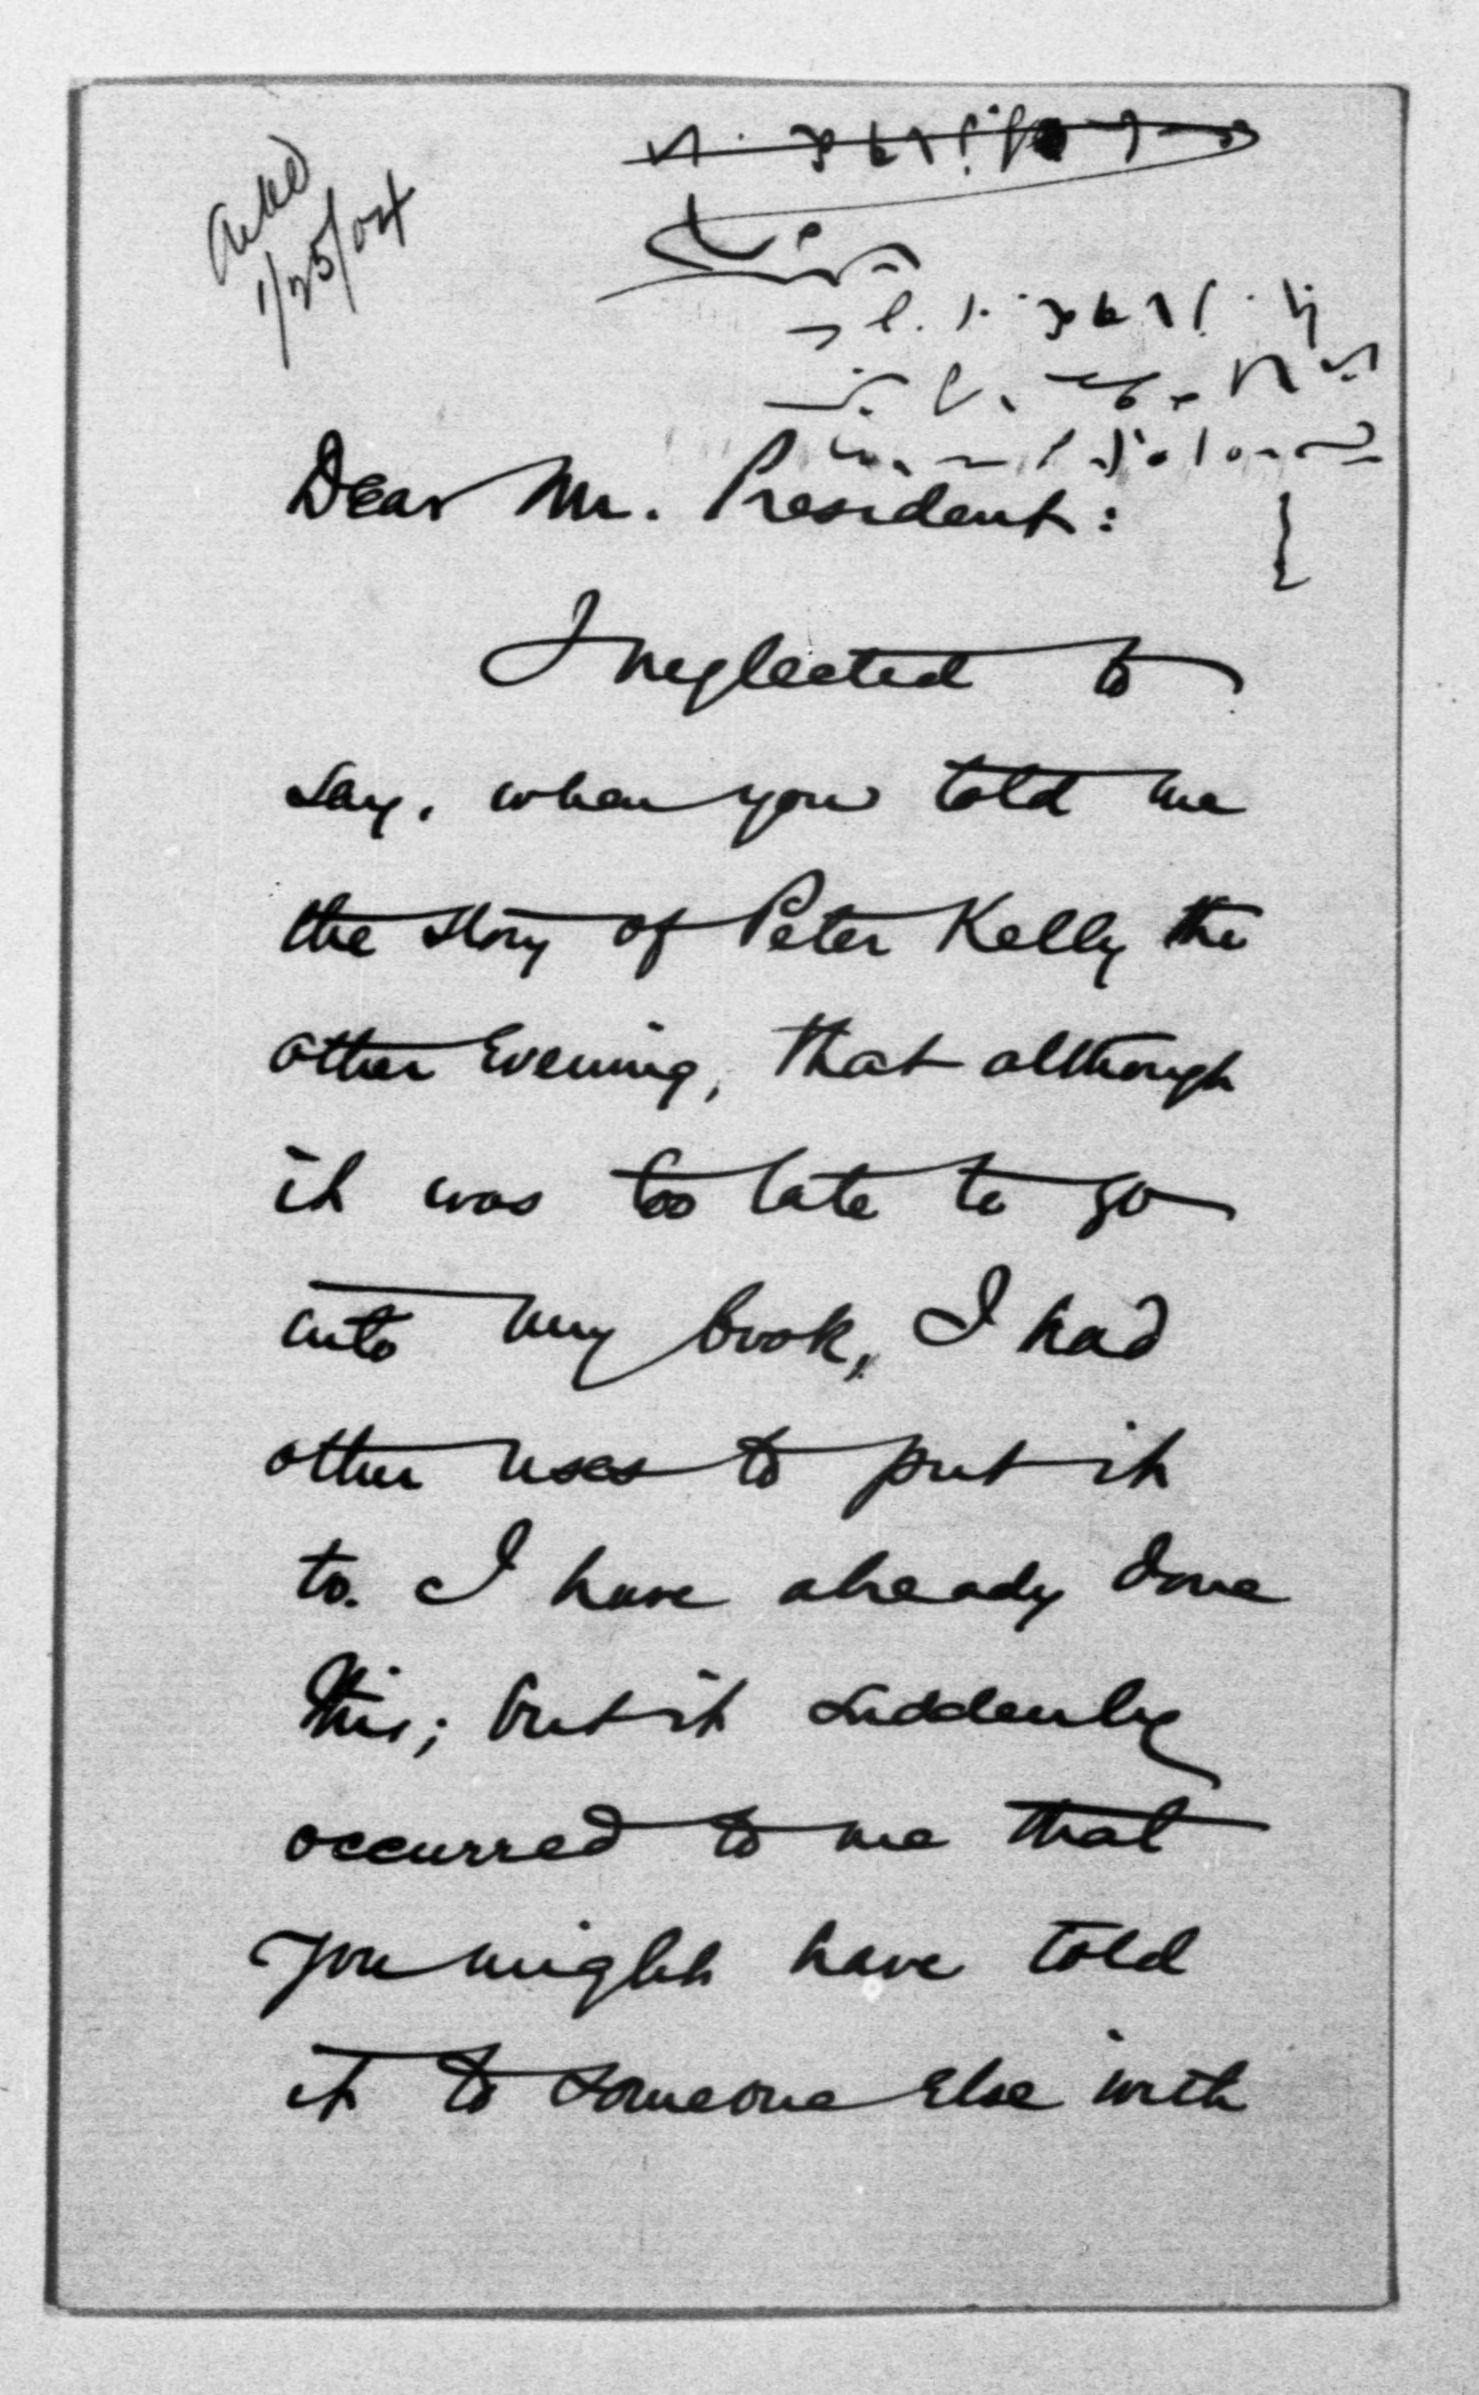 Ackd
1/25/04
Dear Mr. President:
I neglected to
say, when you told me
the story of Peter Kelly the
other evening, that although
it was too late to go
into my book, I had
other uses to put it
to. I have already done
this; but it suddenly
occurred to me that
you might have told
it to someone else with